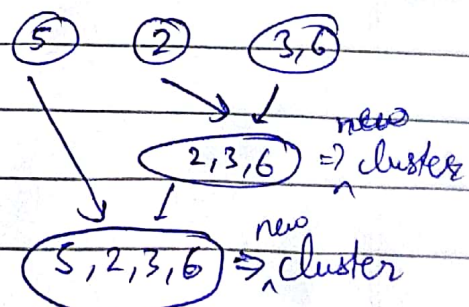 5 2 3,6
2,3,6 ⇒ new cluster
5,2,3,6 ⇒ new cluster